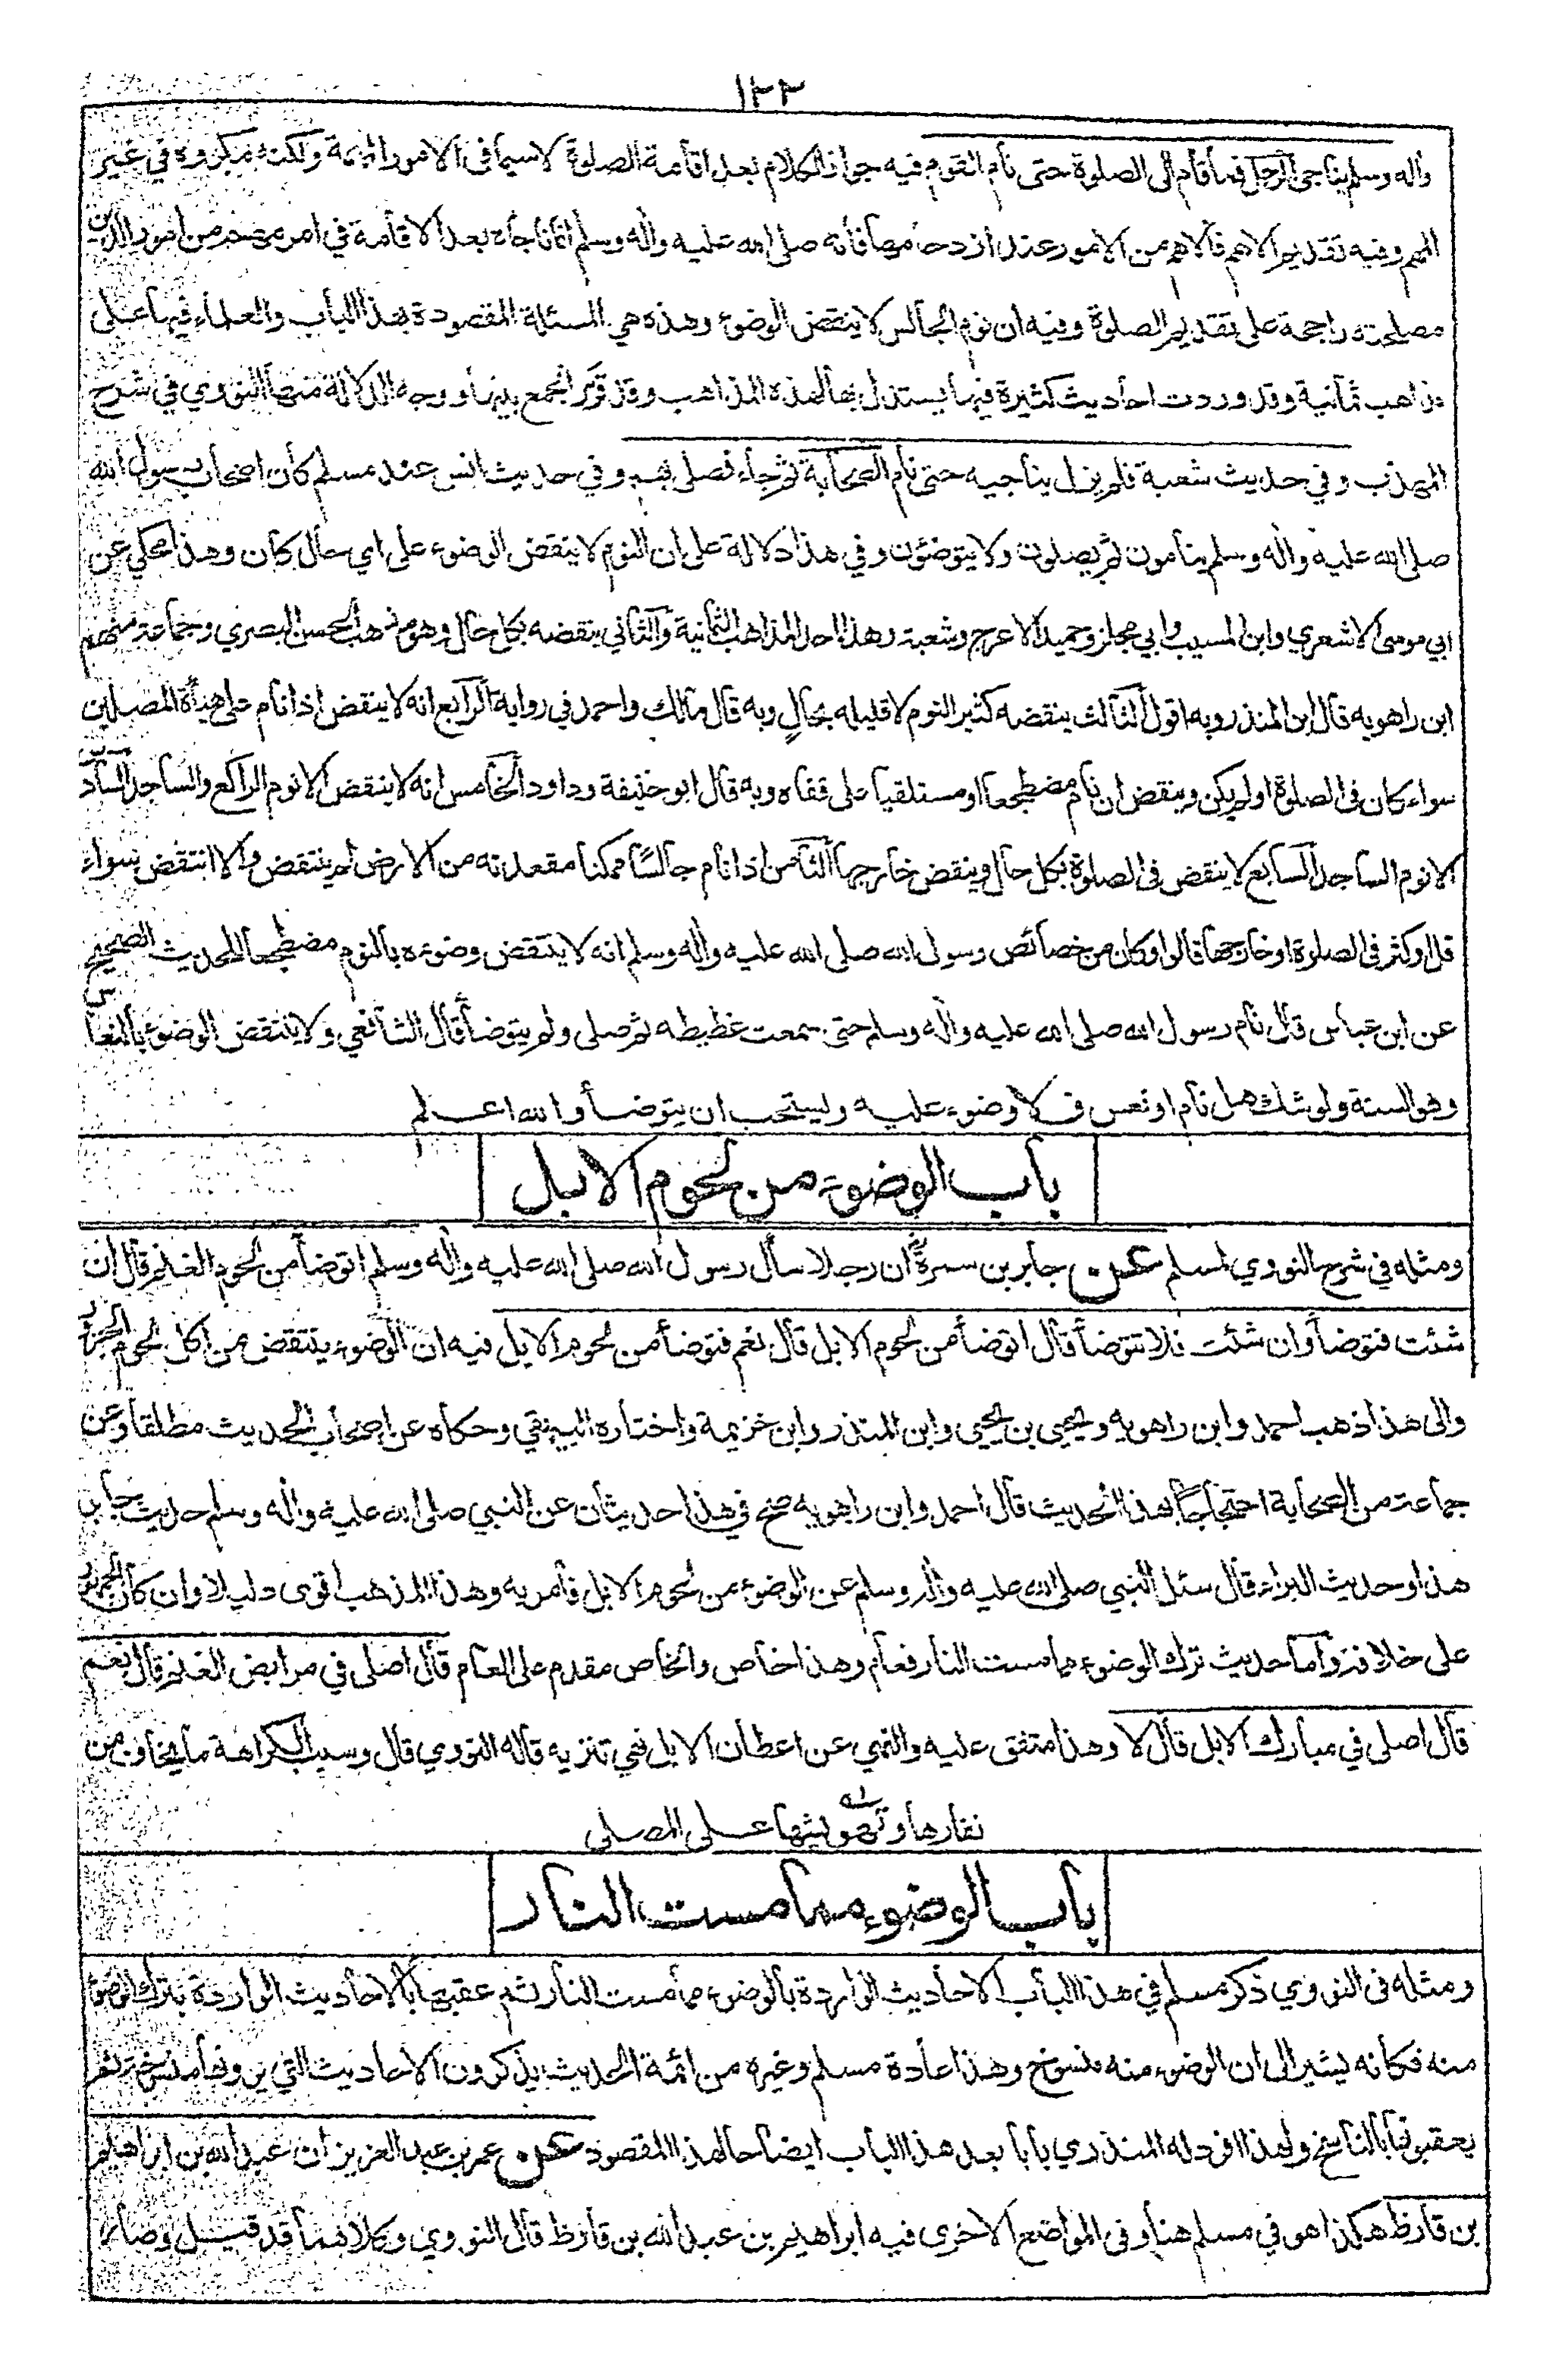 ١٢٢
واله وسلم يناجى الرجل فما قام الى الصلوة حتى نام القوم فيه جواز الكلام بعد اقامة الصلوة لاسيما فى الامور المهمة ولكنه مكروه في غير
المهم وفيه تقديم الاهم فالاهم من الامور عند ازدحامها فانه صلى الله عليه واله وسلم انما ناجاه بعد الاقامة في امر مهم من امور الدين
مصلحته راجحة على تقديم الصلوة وفيه ان نوم الجالس لا ينقض الوضوء وهذه هي المسئلة المقصودة بهذا الباب والعلماء فيها على
مذاهب ثمانية وقد وردت احاديث كثيرة فيها يستدل بها لهذه المذاهب وقد قرر الجمع بينها ووجه الدلالة منها النووي في شرح
المهذب وفي حديث شعبة فلم يزل يناجيه حتى نام الصحابة ثم جاء فصلى بهم وفي حديث انس عند مسلم كان اصحاب رسول الله
صلى الله عليه واله وسلم ينامون ثم يصلون ولا يتوضئون وفي هذا دلالة على ان النوم لا ينقض الوضوء على اي حال كان وهذا محكي عن
ابي موسى الاشعري وابن المسيب وابي مجلز وحميد الاعرج وشعبة وهذا احد المذاهب الثمانية والثاني ينقضه بكل حال وهو مذهب الحسن البصري وجماعة منهم
ابن راهويه قال ابن المنذر وبه اقول الثالث ينقضه كثير النوم لا قليله بحال وبه قال مالك واحمد في رواية الرابع انه لا ينقض اذا نام على هيأة المصلين
سواء كان فى الصلوة او لم يكن وينقض ان نام مضطجعا او مستلقيا على قفاه وبه قال ابو حنيفة وداود الخامس انه لا ينقض الا نوم الراكع والساجد السادس
الا نوم الساجد السابع لا ينقض فى الصلوة بكل حال وينقض خارجها الثامن اذا نام جالسا ممكنا مقعدته من الارض لم ينتقض والا انتقض سواء
قل او كثر فى الصلوة او خارجها قالوا وكان من خصائص رسول الله صلى الله عليه واله وسلم انه لا ينتقض وضوءه بالنوم مضطجعا للحديث الصحيح
عن ابن عباس قال نام رسول الله صلى الله عليه واله وسلم حتى سمعت غطيطه ثم صلى ولم يتوضأ قال الشافعي ولا ينتقض الوضوء بالنعاس
وهو السنة ولو شك هل نام او نعس فلا وضوء عليه ويستحب ان يتوضأ والله اعلم
باب الوضوء من لحوم الابل
ومثله في شرح النووي لمسلم عن جابر بن سمرة ان رجلا سأل رسول الله صلى الله عليه واله وسلم اتوضأ من لحوم الغنم قال ان
شئت فتوضأ وان شئت فلا تتوضأ قال اتوضأ من لحوم الابل قال نعم فتوضأ من لحوم الابل فيه ان الوضوء ينتقض من اكل لحوم الجزور
والى هذا ذهب احمد وابن راهويه ويحيى بن يحيى وابن المنذر وابن خزيمة واختاره البيهقي وحكاه عن اصحاب الحديث مطلقا وعن
جماعة من الصحابة احتجاجا بهذا الحديث قال احمد وابن راهويه صح في هذا حديثان عن النبي صلى الله عليه واله وسلم حديث جابر
هذا وحديث البراء قال سئل النبي صلى الله عليه واله وسلم عن الوضوء من لحوم الابل فأمر به وهذا المذهب اقوى دليلا وان كان الجمهور
على خلافه واما حديث ترك الوضوء مما مست النار فعام وهذا خاص والخاص مقدم على العام قال اصلى في مرابض الغنم قال نعم
قال اصلى في مبارك الابل قال لا وهذا متفق عليه والنهي عن اعطان الابل نهي تنزيه قاله النووي قال وسبب الكراهة ما يخاف من
نفارها وتهويشها على المصلي
باب الوضوء مما مست النار
ومثله فى النووي ذكر مسلم في هذا الباب الاحاديث الواردة بالوضوء مما مست النار ثم عقبها بالاحاديث الواردة بترك الوضوء
منه فكانه يشير الى ان الوضوء منه منسوخ وهذا عادة مسلم وغيره من ائمة الحديث يذكرون الاحاديث التي يرونها منسوخة ثم
يعقبونها بالناسخ ولهذا افرد له المنذري بابا بعد هذا الباب ايضاحا لهذا المقصود عن عمر بن عبد العزيز ان عبد الله بن ابراهيم
بن قارظ هكذا هو في مسلم هنا وفى المواضع الاخرى فيه ابراهيم بن عبد الله بن قارظ قال النووي وكلاهما قد قيل وصار